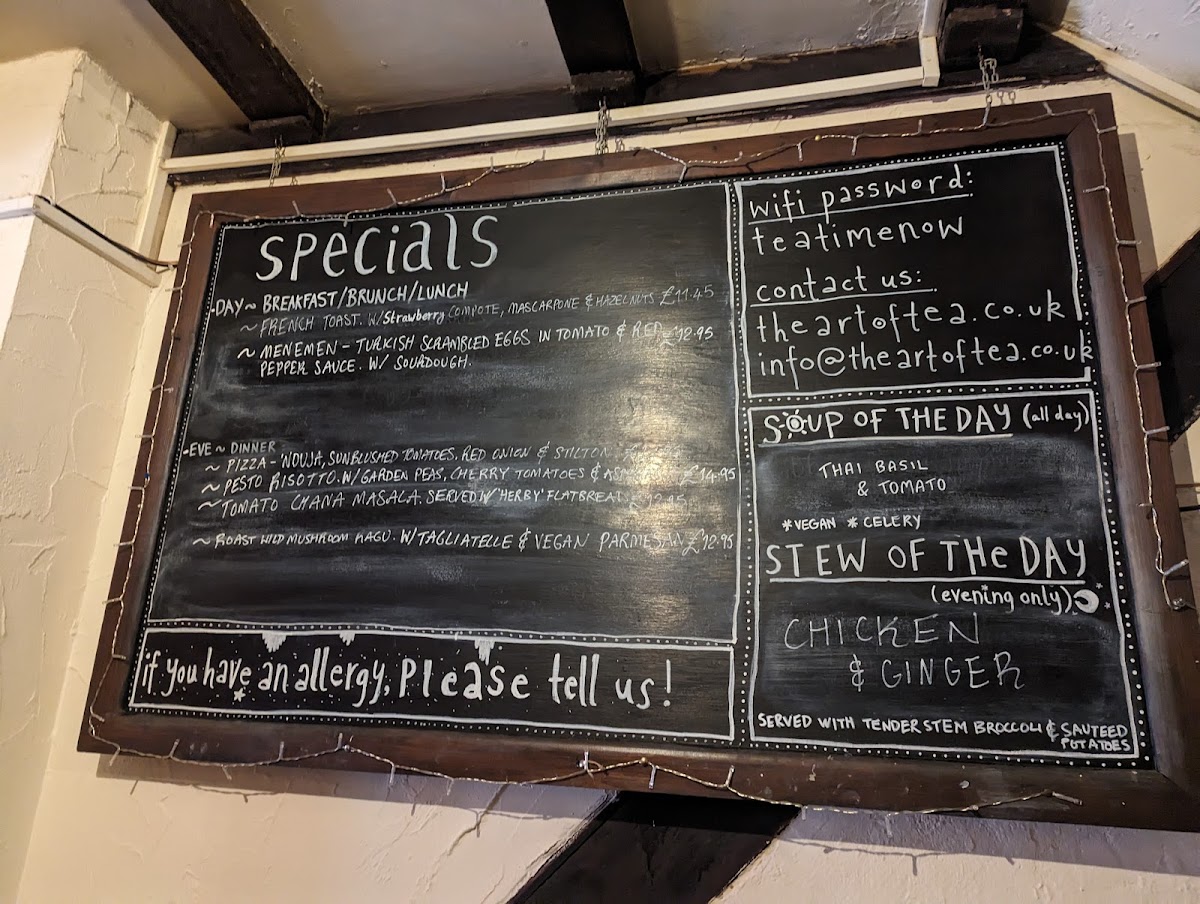 Specials
-DAY ~ BREAKFAST/BRUNCH/LUNCH
~ FRENCH TOAST. W/ Strawberry COMPOTE, MASCARPONE & HAZELNUTS £11.45
~ MENEMEN - TURKISH SCRAMBLED EGGS IN TOMATO & RED £12.95
PEPPER SAUCE. W/ SOURDOUGH.
-EVE ~ DINNER
~ PIZZA - 'NDUJA, SUNBLUSHED TOMATOES, RED ONION & STILTON
~ PESTO RISOTTO. W/ GARDEN PEAS, CHERRY TOMATOES & £14.95
~ TOMATO CHANA MASALA. SERVED W/ 'HERBY' FLATBREAD
~ ROAST WILD MUSHROOM RAGU. W/ TAGLIATELLE & VEGAN PARMESAN £12.95
if you have an allergy, Please tell us!
wifi password:
teatimenow
contact us:
theartoftea.co.uk
info@theartoftea.co.uk
SOUP OF THE DAY (all day)
THAI BASIL
& TOMATO
*VEGAN *CELERY
STEW OF THE DAY
(evening only)
CHICKEN
& GINGER
SERVED WITH TENDERSTEM BROCCOLI & SAUTEED
POTATOES